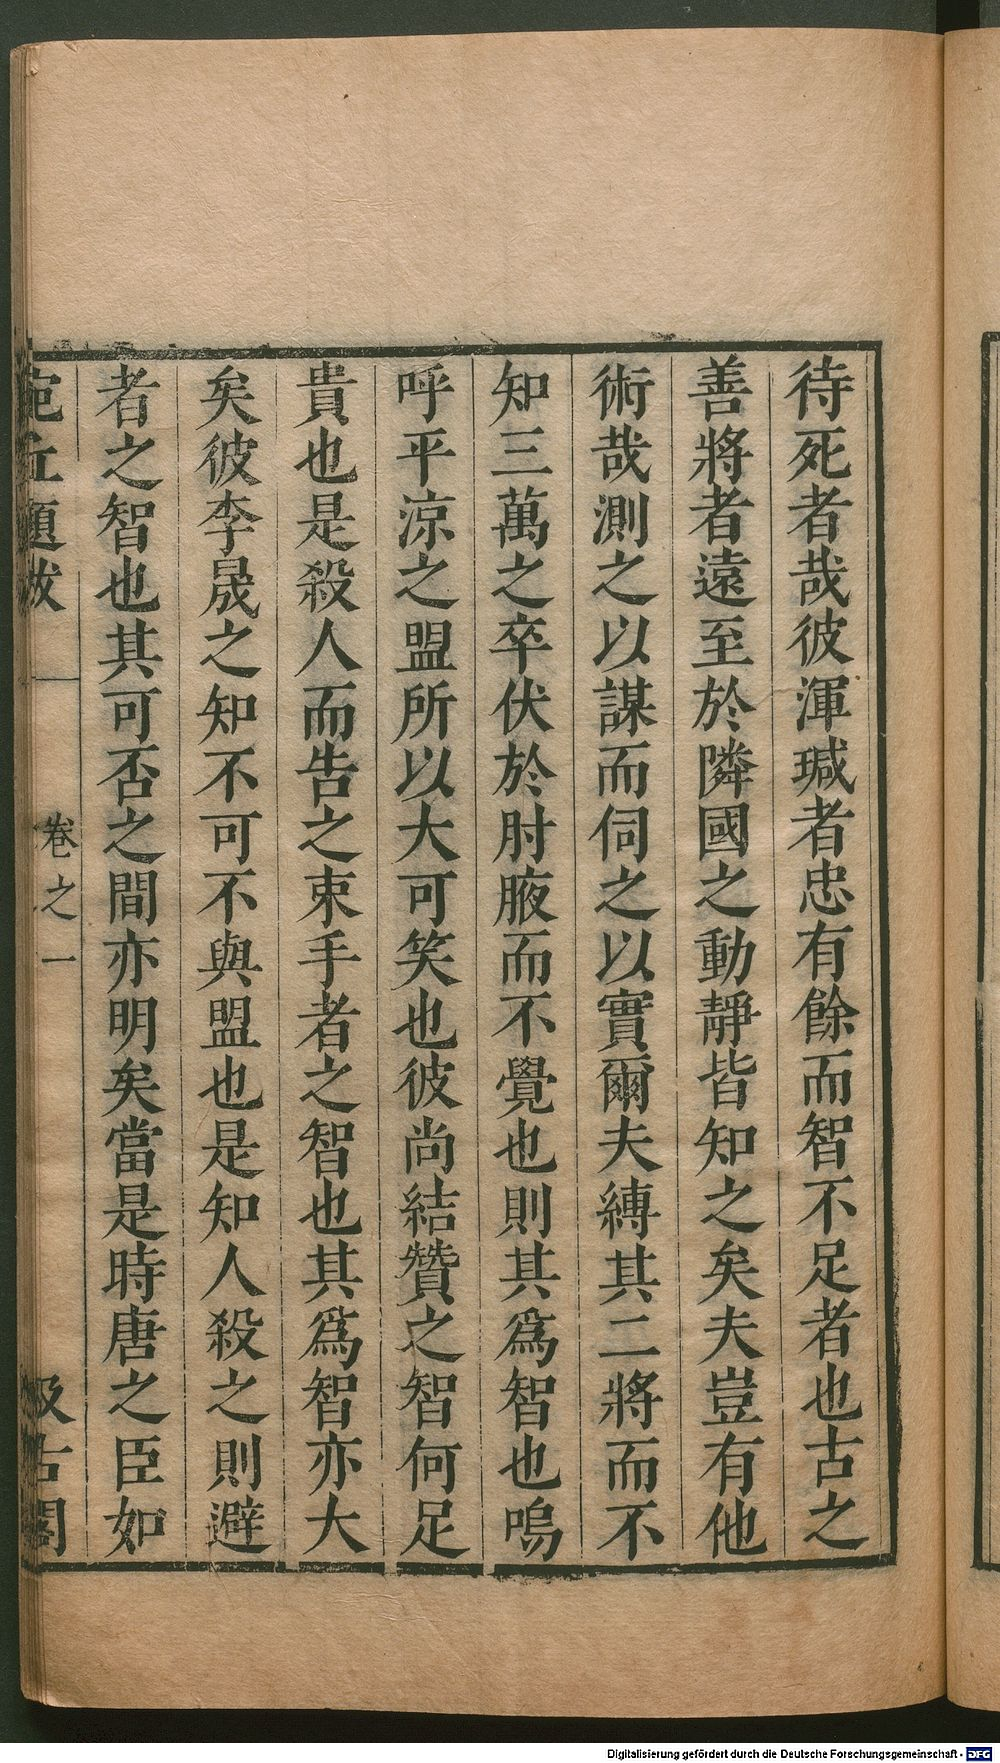 待死者哉彼渾瑊者忠有餘而智不足者也古之
善將者遠至於隣國之動靜皆知之矣夫豈有他
術哉測之以謀而伺之以實爾夫縛其二將而不
知三萬之卒伏於肘腋而不覺也則其爲智也嗚
呼平涼之盟所以大可笑也彼尚結贊之智何足
貴也是殺人而告之束手者之智也其爲智亦大
矣彼李晟之知不可不與盟也是知人殺之則避
者之智也其可否之間亦明矣當是時唐之臣如
宛丘題跋 卷之一 汲古閣
Digitalisierung gefördert durch die Deutsche Forschungsgemeinschaft - DFG